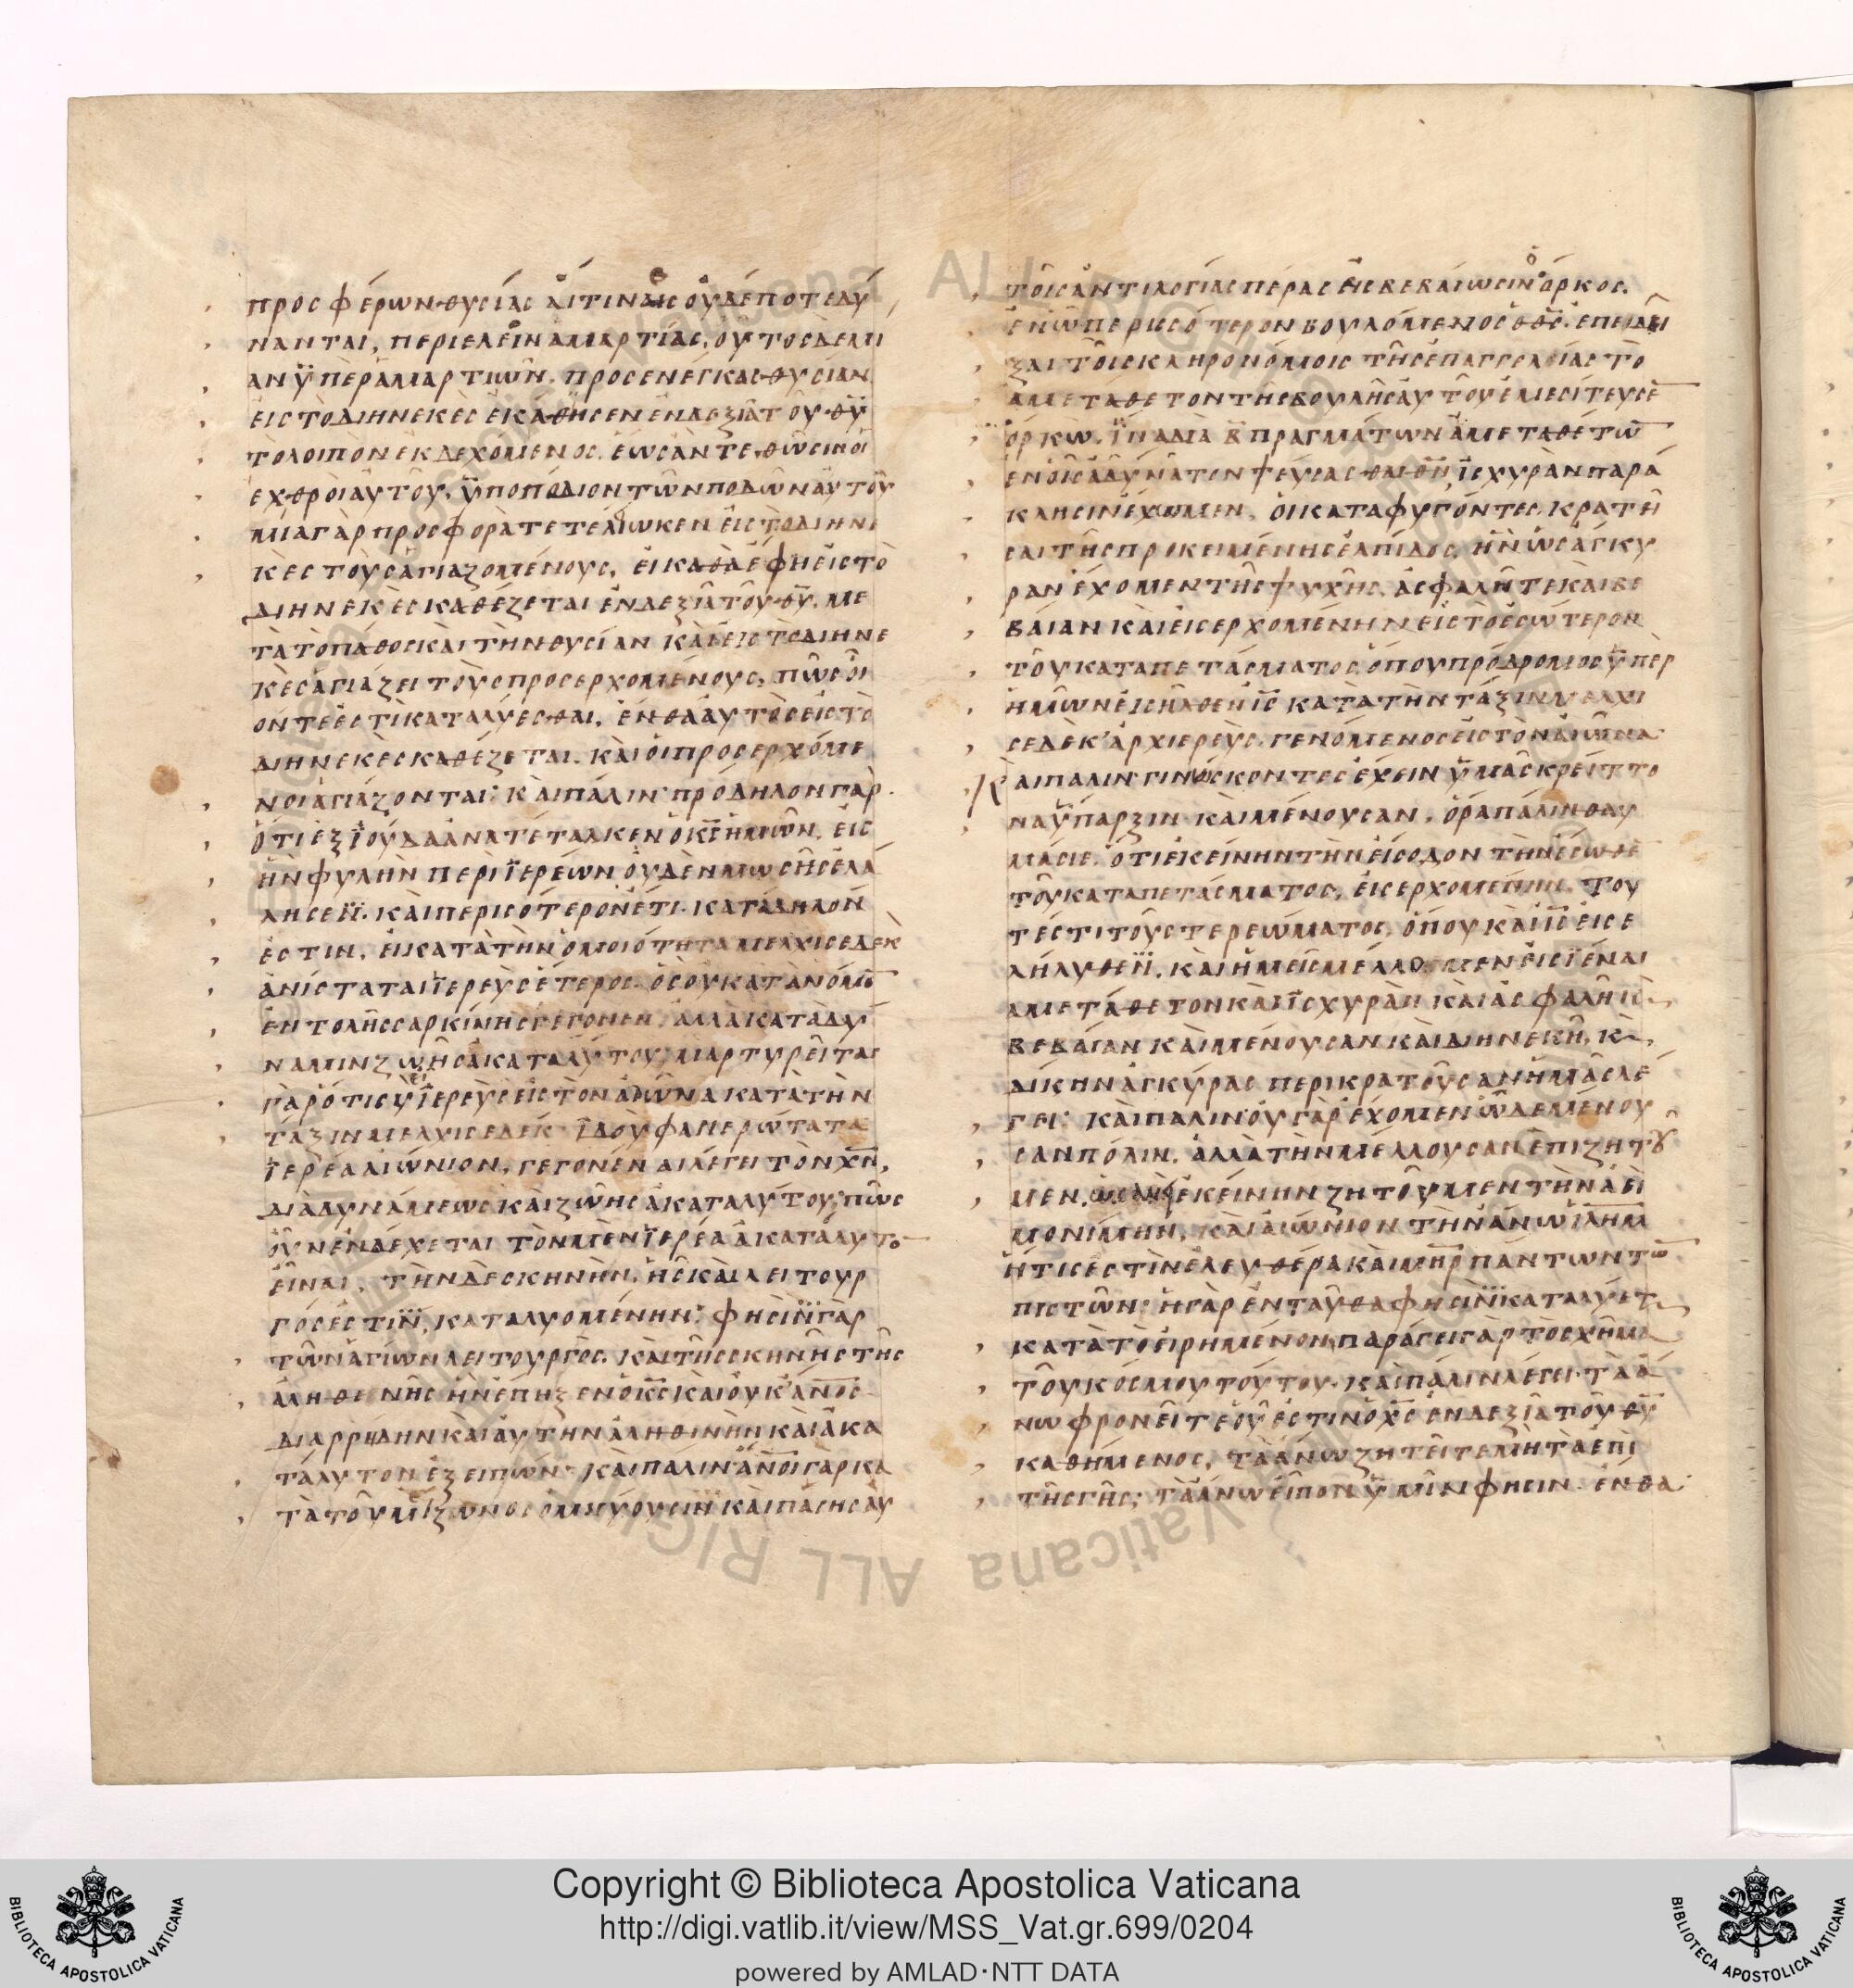 προσφέρων θυσίας αἵτινες οὐδέποτε δύ
νανται, περιελεῖν ἁμαρτίας, οὗτος δὲ μι
αν ὑπὲρ ἁμαρτιῶν προσενέγκας θυσίαν
εἰς τὸ διηνεκὲς ἐκάθησεν ἐν δεξιᾷ τοῦ θυ
τὸ λοιπὸν ἐκδεχόμενος, ἕως ἂν τεθῶσιν οἱ
ἐχθροὶ αὐτοῦ, ὑποπόδιον τῶν ποδῶν αὐτοῦ
μία γὰρ προσφορὰ τετελείωκεν εἰς τὸ διηνε
κὲς τοὺς ἁγιαζομένους, εἰ καθὰ ἔφη εἰς τὸ
διηνεκὲς καθέζεται ἐν δεξιᾷ τοῦ θυ, με
τὰ τὸ πάθος καὶ τὴν θυσίαν καὶ εἰς τὸ διηνε
κὲς ἁγιάζει τοὺς προσερχομένους, πῶς οἷ
όν τε ἐστὶ καταλύεσθαι, ἔνθα αὐτὸς εἰς τὸ
διηνεκὲς καθέζεται καὶ οἱ προσερχόμε
νοι ἁγιάζονται· καὶ πάλιν πρόδηλον γὰρ
ὅτι ἐξ ϊούδα ἀνατέταλκεν ὁ κς ἡμῶν, εἰς
ἣν φυλὴν περὶ ϊερέων οὐδὲν μωσῆς ἐλά
λησεν. καὶ περισότερον ἔτι κατάδηλόν
ἐστιν, εἰ κατὰ τὴν ὁμοιότητα μελχισεδὲκ
ἀνίσταται ϊερεὺς ἕτερος ὃς οὐ κατὰ νόμο
ἐντολῆς σαρκίνης γέγονεν, ἀλλὰ κατὰ δύ
ναμιν ζωῆς ἀκαταλύτου μαρτυρεῖται
γὰρ ὅτι σὺ εἶ ϊερεὺς εἰς τὸν αἰῶνα κατὰ τὴν
τάξιν μελχισεδέκ ϊδοὺ φανερώτατα
ϊερέα αἰώνιον, γεγονέναι λέγει τὸν χν,
διὰ δυνάμεως καὶ ζωῆς ἀκαταλύτου· πῶς
οὖν ἐνδέχεται τὸν μὲν ϊερέα ἀκατάλυτο
εἶναι, τὴν δὲ σκηνὴν, ἧς καὶ λειτουρ
γός ἐστιν, καταλυομένην· φησὶν γὰρ
τῶν ἁγίων λειτουργὸς. καὶ τῆς σκηνῆς τῆς
ἀληθινῆς ἣν ἔπηξεν ὁ κς καὶ οὐκ ανος
διαρρήδην καὶ αὐτὴν ἀληθινὴν καὶ ἀκα
τάλυτον ἐξειπών· καὶ πάλιν ανοι γὰρ κα
τὰ τοῦ μείζωνος ομνύουσιν καὶ πάσης αὐ
τοῖς ἀντιλογίας πέρας εἰς βεβαίωσιν ὁ ὅρκος.
ἐν ᾧ περισότερον βουλόμενος ὁ θς, ἐπιδεῖ
ξαι τοῖς κληρονόμοις τῆς ἐπαγγελίας τὸ
ἀμετάθετον τῆς βουλῆς αὐτοῦ ἐμεσίτευσε
ὅρκω, ϊνα διὰ β πραγμάτων ἀμεταθέτω
ἐν οἷς ἀδύνατον ψεύσασθαι θν, ϊσχυρὰν παρά
κλησιν ἔχωμεν, οἱ καταφυγόντες, κρατῆ
σαι τῆς προκειμένης ἐλπίδος, ἣν ὡς ἄγκυ
ραν ἔχομεν τῆς ψυχῆς, ἀσφαλῆ τε καὶ βε
βαίαν καὶ εἰσερχομένην εἰς τὸ ἐσώτερον
τοῦ καταπετάσματος ὅπου πρόδρομος ὑπὲρ
ἡμῶν εἰσῆλθεν ις κατὰ τὴν τάξιν μελχι
σεδὲκ ἀρχιερεὺς γενόμενος εἰς τὸν αἰῶνα
Καὶ πάλιν γινώσκοντες ἔχειν ὑμᾶς κρείττο
να ὕπαρξιν καὶ μένουσαν, ὅρα πάλιν θαυ
μάσιε, ὅτι ἐκείνην τὴν εἴσοδον τὴν ἔσωθε
τοῦ καταπετάσματος, εἰσερχομένην του
τέστι τοῦ στερεώματος, ὅπου καὶ ις εἰσε
λήλυθεν, καὶ ἡμεῖς μέλλομεν εἰσϊέναι
ἀμετάθετον καὶ ϊσχυρὰν καὶ ἀσφαλῆ κὰι
βεβαίαν καὶ μένουσαν καὶ διηνεκῆ, κὰι
δίκην ἀγκύρας περικρατοῦσαν ἡμᾶς λέ
γει· καὶ πάλιν οὐ γὰρ ἔχομεν ὧδε μένου
σαν πόλιν, ἀλλὰ τὴν μέλλουσαν ἐπιζητοῦ
μεν, ἐκείνην ζητοῦμεν τὴν ἀεὶ
μονίμην, καὶ αἰώνιον τὴν ἄνω ϊλημ
ἥτις ἐστὶν ἐλευθέρα καὶ μηρ πάντων τῶ
πιστῶν· ἡ γὰρ ἐνταῦθα φησὶν καταλύεται
κατὰ τὸ εἰρημένον παράγει γὰρ τὸ σχῆμα
τοῦ κόσμου τούτου· καὶ πάλιν λέγει· τὰ ἄ
νω φρονεῖτε οὗ ἐστὶν ὁ χς ἐν δεξιᾷ τοῦ θυ
καθήμενος, τὰ ἄνω ζητεῖτε μὴ τὰ ἐπὶ
τῆς γῆς· τὰ ἄνω εἶπον ὑμῖν φησιν ἔνθα
Copyright © Biblioteca Apostolica Vaticana
http://digi.vatlib.it/view/MSS_Vat.gr.699/0204
powered by AMLAD·NTT DATA
BIBLIOTECA APOSTOLICA VATICANA
BIBLIOTECA APOSTOLICA VATICANA